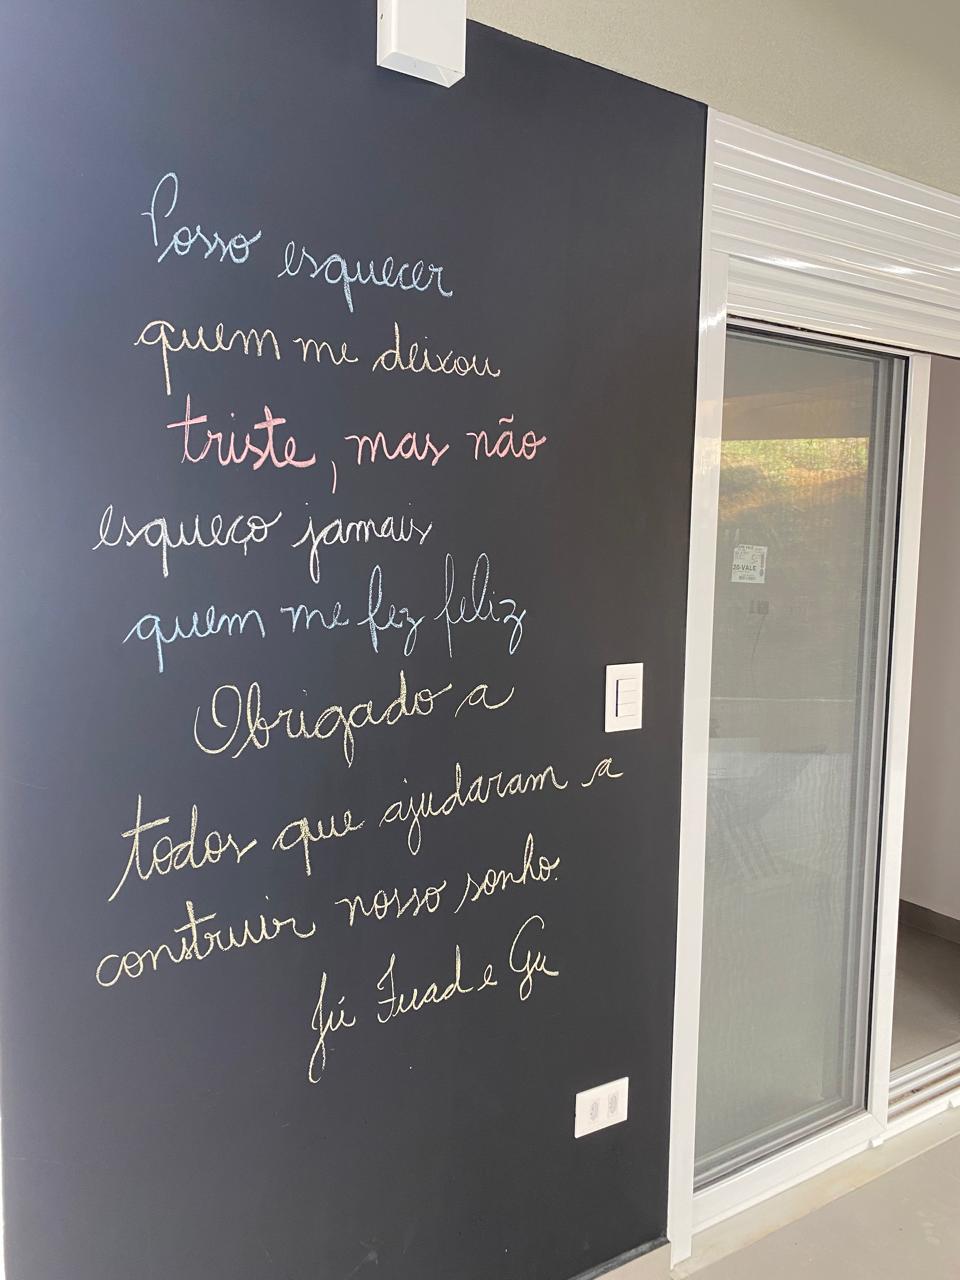 Posso esquecer
quem me deixou
triste, mas não
esqueço jamais
quem me fez feliz
Obrigado a
todos que ajudaram a
construir nosso sonho.
Jú Fuad e Gu
20-VALE